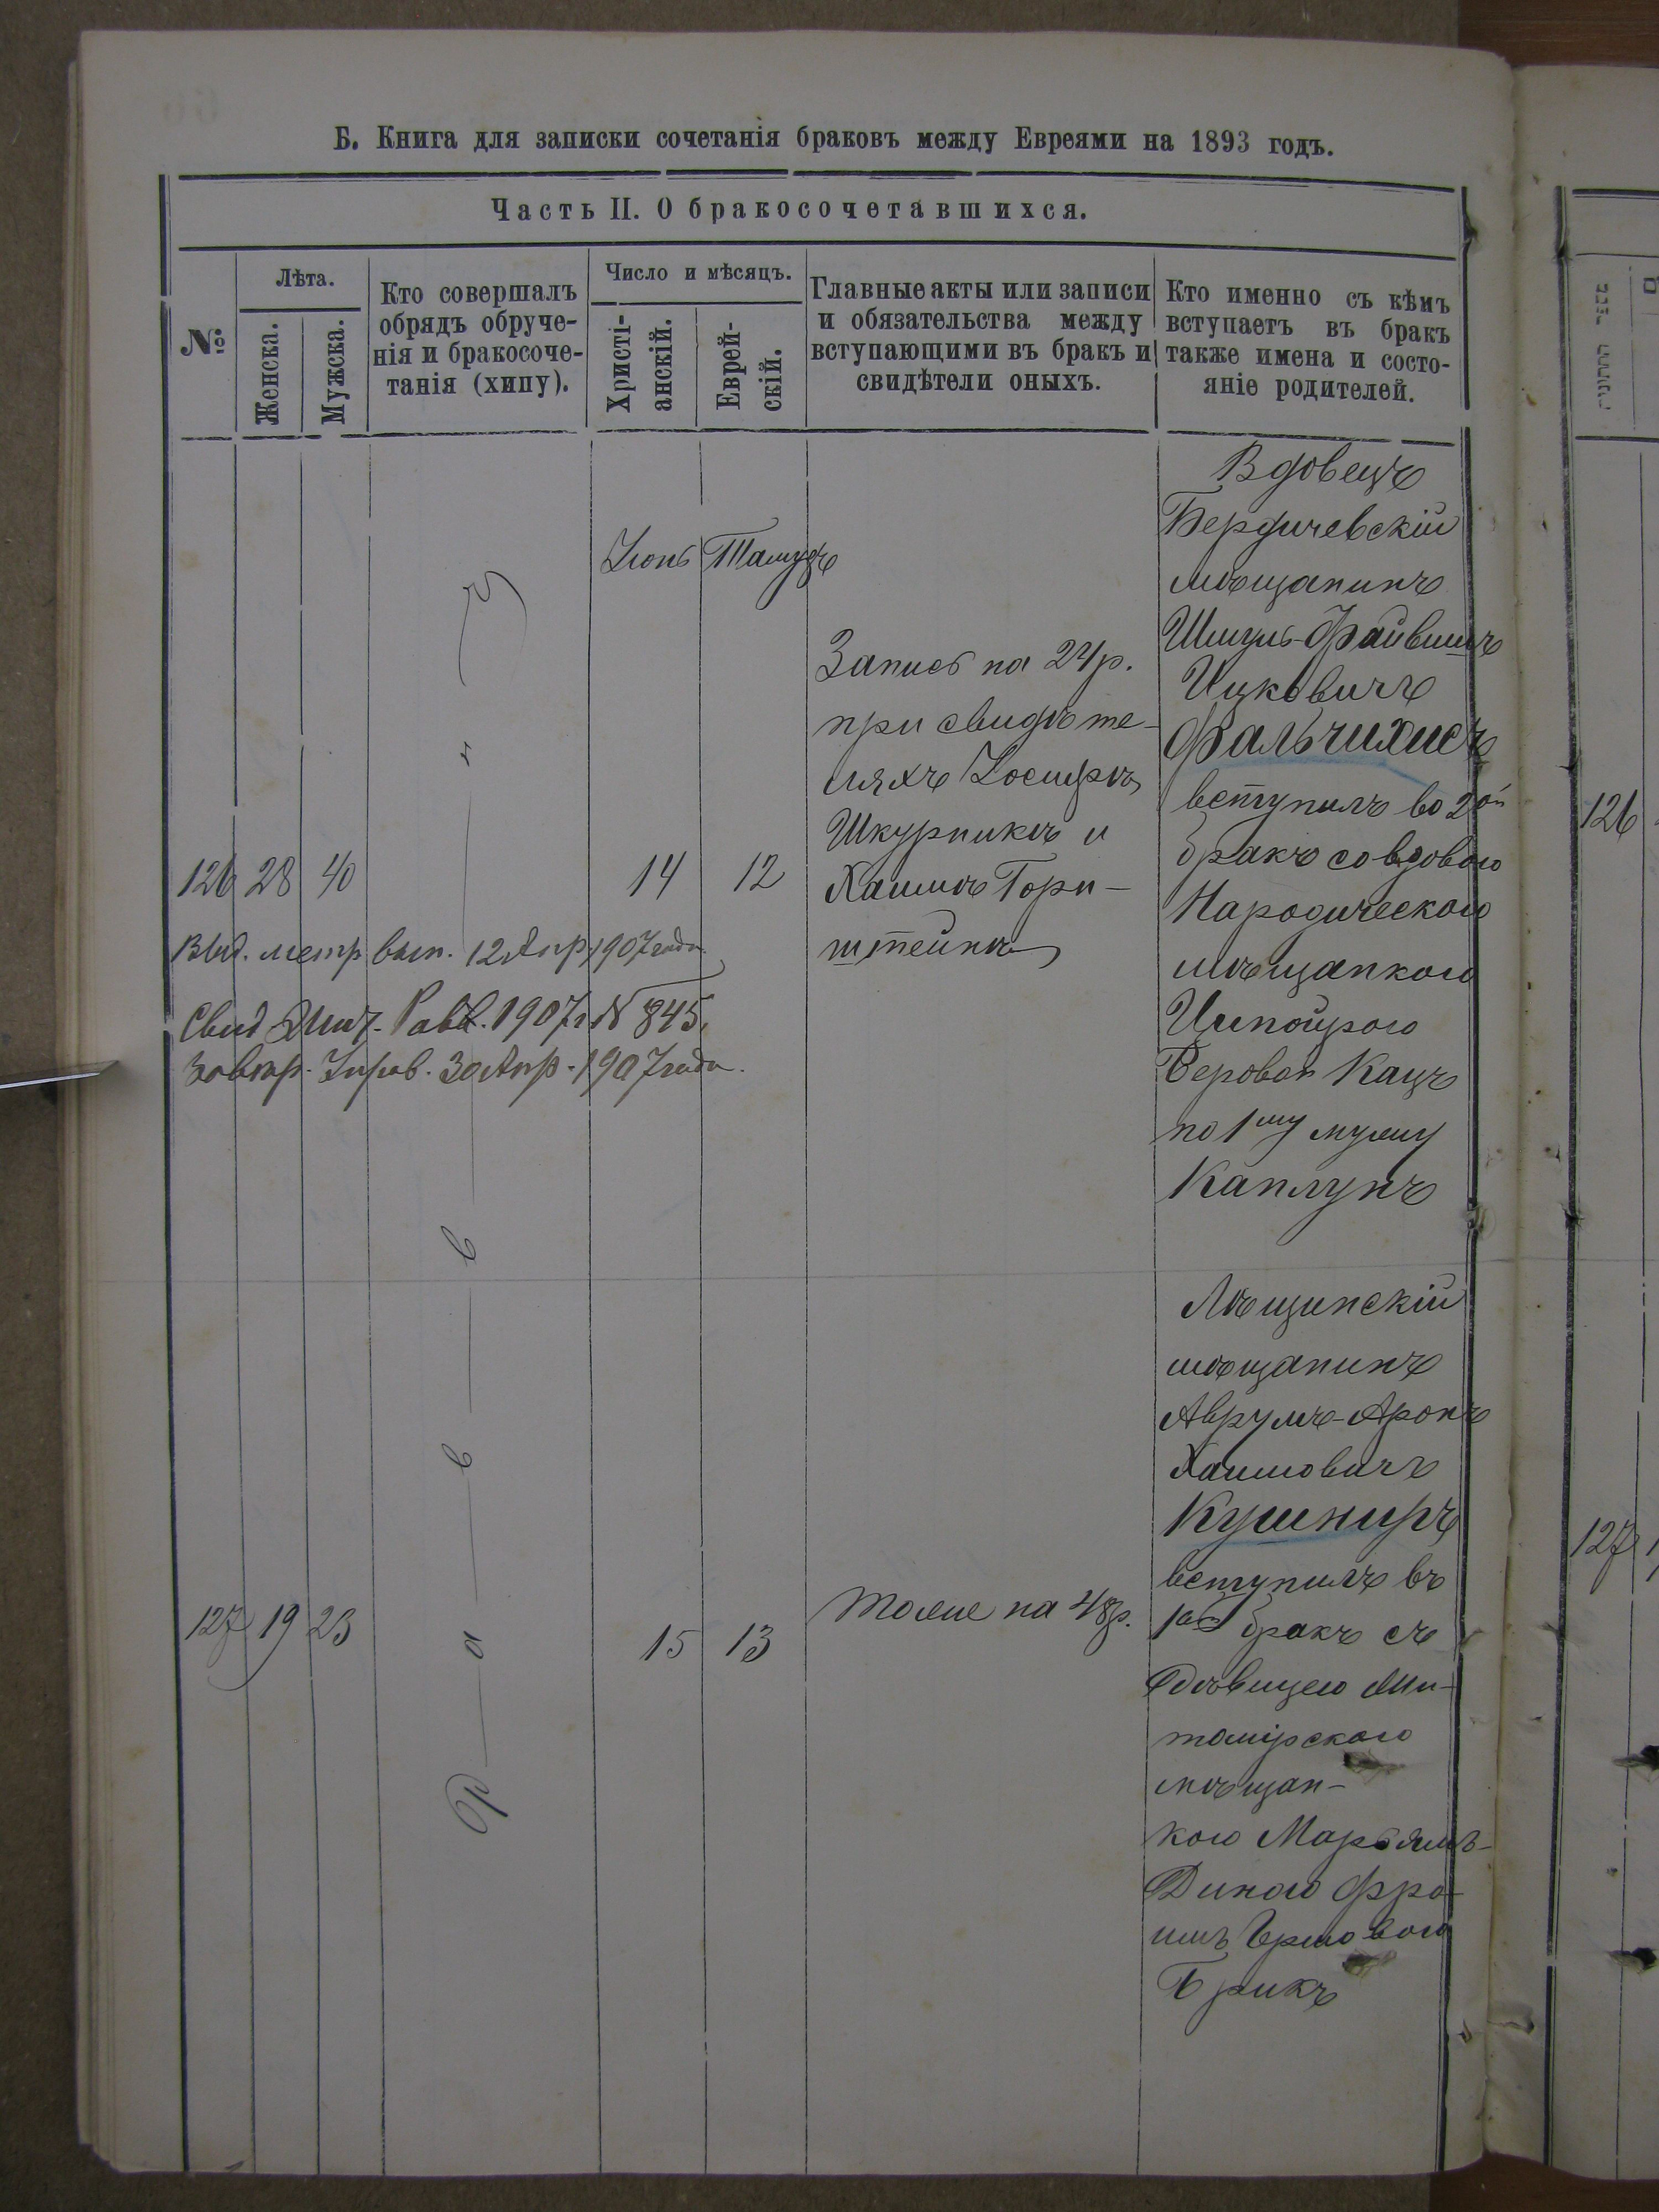 Б. Книга для записки сочетанія браковъ между Евреями на 1893 годъ.
Часть II. О бракосочетавшихся.
№
Лѣта.
Женска.
Мужска.
Кто совершалъ
обрядъ обруче-
нія и бракосоче-
танія (хипу).
Число и мѣсяцъ.
Христі-
анскій.
Еврей-
скій.
Главные акты или записи
и обязательства между
вступающими въ бракъ и
свидѣтели оныхъ.
Кто именно съ кѣмъ
вступаетъ въ бракъ
также имена и состо-
яніе родителей.
Р а в в и н
Іюнь Тамузъ
126 28 40
14 12
Запись на 24 р.
при свидѣте-
ляхъ Іосифѣ
Шкурникѣ и
Хаимѣ Горн-
штейнѣ
Вдовецъ
Бердичевскій
мѣщанинъ
Шмуль-Файвишъ
Ицковичъ
Фальчихисъ
вступилъ во 2ой
бракъ со вдовою
Народическою
мѣщанкою
Ципойрою
Беровой Кацъ
по 1му мужу
Каплунъ
Выд. метр. вып. 12 Апр. 1907 года
Свид. Жит. Рав. 1907 г. № 845
30 Апр. 1907 года.
127 19 23
15 13
тоже на 48 р.
мѣщанинъ
Аврумъ-Аронъ
Хаимовичъ
Кушниръ
вступилъ въ
1ый бракъ съ
дѣвицею Жи-
томірскою
мѣщан-
кою Марьямъ-
Диною Фро-
имъ Берковою
Брикъ
126
127